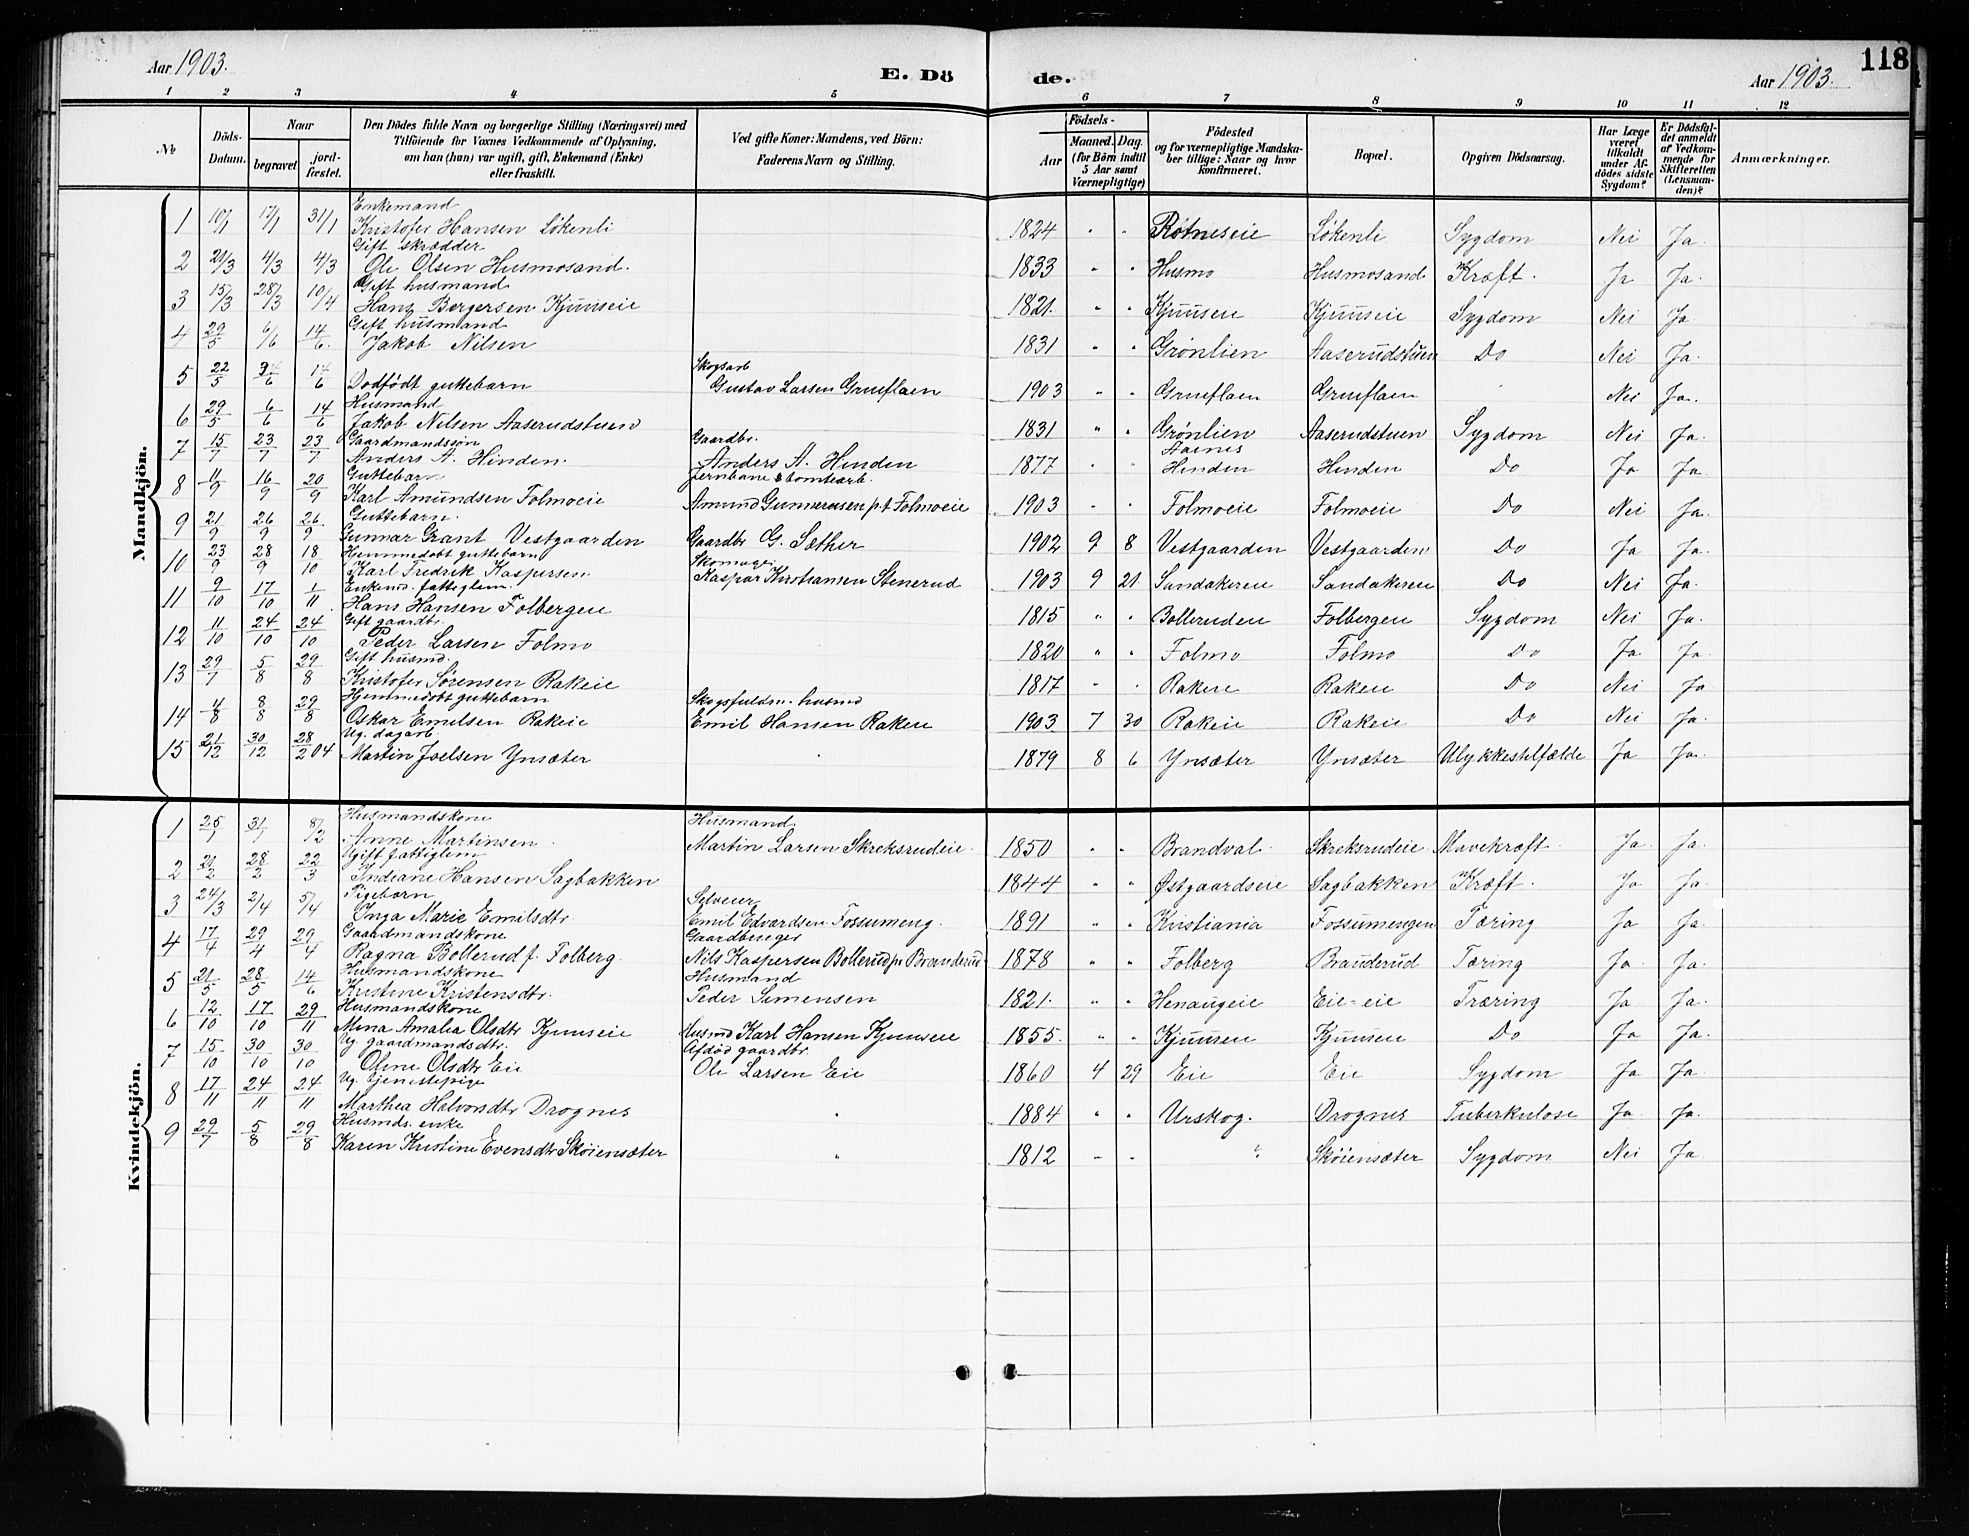 Aar 1903.
E. Dö
de.
Aar 1903.
118
1 2 3 4 5 6 7 8 9 10 11 12
№
Döds-Datum.
Naar
begravet
jord-fæstet.
Den Dödes fulde Navn og borgerlige Stilling (Næringsvei) med
Tilföiende for Voxnes Vedkommende af Oplysning,
om han (hun) var ugift, gift, Enkemand (Enke)
eller fraskilt.
Ved gifte Koner: Mandens, ved Börn:
Faderens Navn og Stilling.
Födsels-
Aar
Maaned. Dag.
(for Börn indtil
5 Aar samt
Værnepligtige)
Födested
og for værnepligtige Mandska-
ber tillige: Naar og hvor
konfirmeret.
Bopæl.
Opgiven Dödsaarsag.
Har Læge
været
tilkaldt
under Af-
dödes sidste
Sygdom?
Er Dödsfal-
det anmeldt
af Vedkom-
mende for
Skifteretten
(Lensman-
den)?
Anmærkninger.
Mandkjön.
Enkemand
1 10/1 17/1 31/1 Kristofer Hansen Løkenli 1824 " " Rotneseie Løkenli Sygdom Nei Ja.
Gift skrædder
2 21/3 4/3 4/3 Ole Olsen Husmosand. 1833 " " Husmo Husmosand Kræft. Ja Ja.
Gift husmand
3 15/3 28/3 10/4 Hans Bergersen Kjuuseie 1821. " " Kjuuseie Kjuuseie Sygdom Nei Ja.
Gift husmand
4 29/5 6/6 14/6. Jakob Nilsen 1831 " " Grønlien Aaserudstuen Do Nei Ja.
Skogsarb
5 22/5 /6 14/6 Dødfødt guttebarn Gustav Larsen Grueflaen 1903 " " Grueflaen Grueflaen Nei Ja.
Husmand
6 29/5 6/6 14/6 Jakob Nilsen Aaserudstuen 1831 " " Grønlien Aaserudstuen Sygdom Nei Ja.
Gaardmandssøn Gaardbr. Aarnes
7 15/7 23/7 23/7 Anders A. Hinden. Anders A. Hinden 1877 " " Hinden Hinden Do Ja Ja.
Guttebarn Jernbane & tomtearb.
8 11/9 16/9 20/9 Karl Amundsen Folmoeie Amund Gunnerusen p.t Folmoeie 1903 " " Folmoeie Folmoeie Do Nei Ja.
Guttebarn.
9 21/9 26/9 26/9 Gunnar Grant Vestgaarden Gaardbr G. Sæther 1902 9 8 Vestgaarden Vestgaarden Do Ja Ja.
Hjemmedøbt guttebarn Skomager
10 23/9 28/9 18/10 Karl Fredrik Kaspersen. Kaspar Kristiansen Stenerud 1903 9 21 Sandakereie Sandakreie Do Nei Ja.
Enkemd. fattiglem.
11 9/10 17/10 1/11 Hans Hansen Folbergeie 1815 " " Bollerudeie Folbergeie Sygdom Nei Ja.
Gift gaardbr.
12 11/10 24/10 24/10 Peder Larsen Folmo 1820 " " Folmo Folmo Do Ja Ja.
Gift husmd.
13 29/7 5/8 29/8 Kristofer Sørensen Rakeie 1817 " " Rakeie Rakeie Do Nei Ja.
Hjemmedøbt guttebarn Skogsfuldm. husmd
14 4/8 8/8 29/8 Oskar Emilsen Rakeie Emil Hansen Rakeie 1903 7 30 Rakeie Rakeie Do Nei Ja.
Ug. dagarb.
15 21/12 30/12 28/2 04 Martin Joelsen Ynsæter 1879 8 6 Ynsæter Ynsæter Ulykkestilfælde Ja Ja.
Kvindekjön.
Husmandskone Husmand
1 25/1 31/1 8/2 Anne Martinsen. Martin Larsen Skreksrudeie. 1850 " " Brandval Skreksrudeie Mavekræft Ja Ja.
Ugift fattiglem
2 21/2 28/2 22/3 Indiane Hansen Sagbakken 1844 " " Østgaardseie Sagbakken Kræft. Ja Ja.
Pigebarn Selveier
3 24/3 2/4 5/4 Inga Marie Emilsdtr. Emil Edvardsen Fossumeng. 1891 " " Kristiania Fossumengen Tæring Ja Ja.
Gaardmandskone Gaardbruger
4 17/4 29/4 29/4 Ragna Bollerud f. Folberg. Nils Kaspersen Bollerud pr Branderud 1878 " " Folberg Brauderud Tæring Ja. Ja.
Husmandskone Husmand
5 21/5 28/5 14/6 Kristine Kristensdtr. Peder Simensen 1821. " " Henaugeie Eie-eie Træring Ja. Ja.
Husmandskone
6 12/10 17/10 29/11 Mina Amalia Olsdtr Kjuuseie Husmd Karl Hansen Kjuuseie 1855. " " Kjuuseie Kjuuseie Do Ja Ja.
Ug. gaardmandsdtr. Afdød gaardbr.
7 15/10 30/10 30/10 Oline Olsdtr Eie Ole Larsen Eie 1860 4 29 Eie Eie Sygdom Ja Ja.
Ug. tjenestepige
8 17/11 24/11 24/11 Marthea Halvorsdtr Drognes " 1884 " " Urskog. Drognes Tuberkulose Ja. Ja.
Husmds. enke
9 29/7 5/8 29/8 Karen Kristine Evensdtr Skøiensæter " 1812 " " " Skøiensæter Sygdom Nei Ja